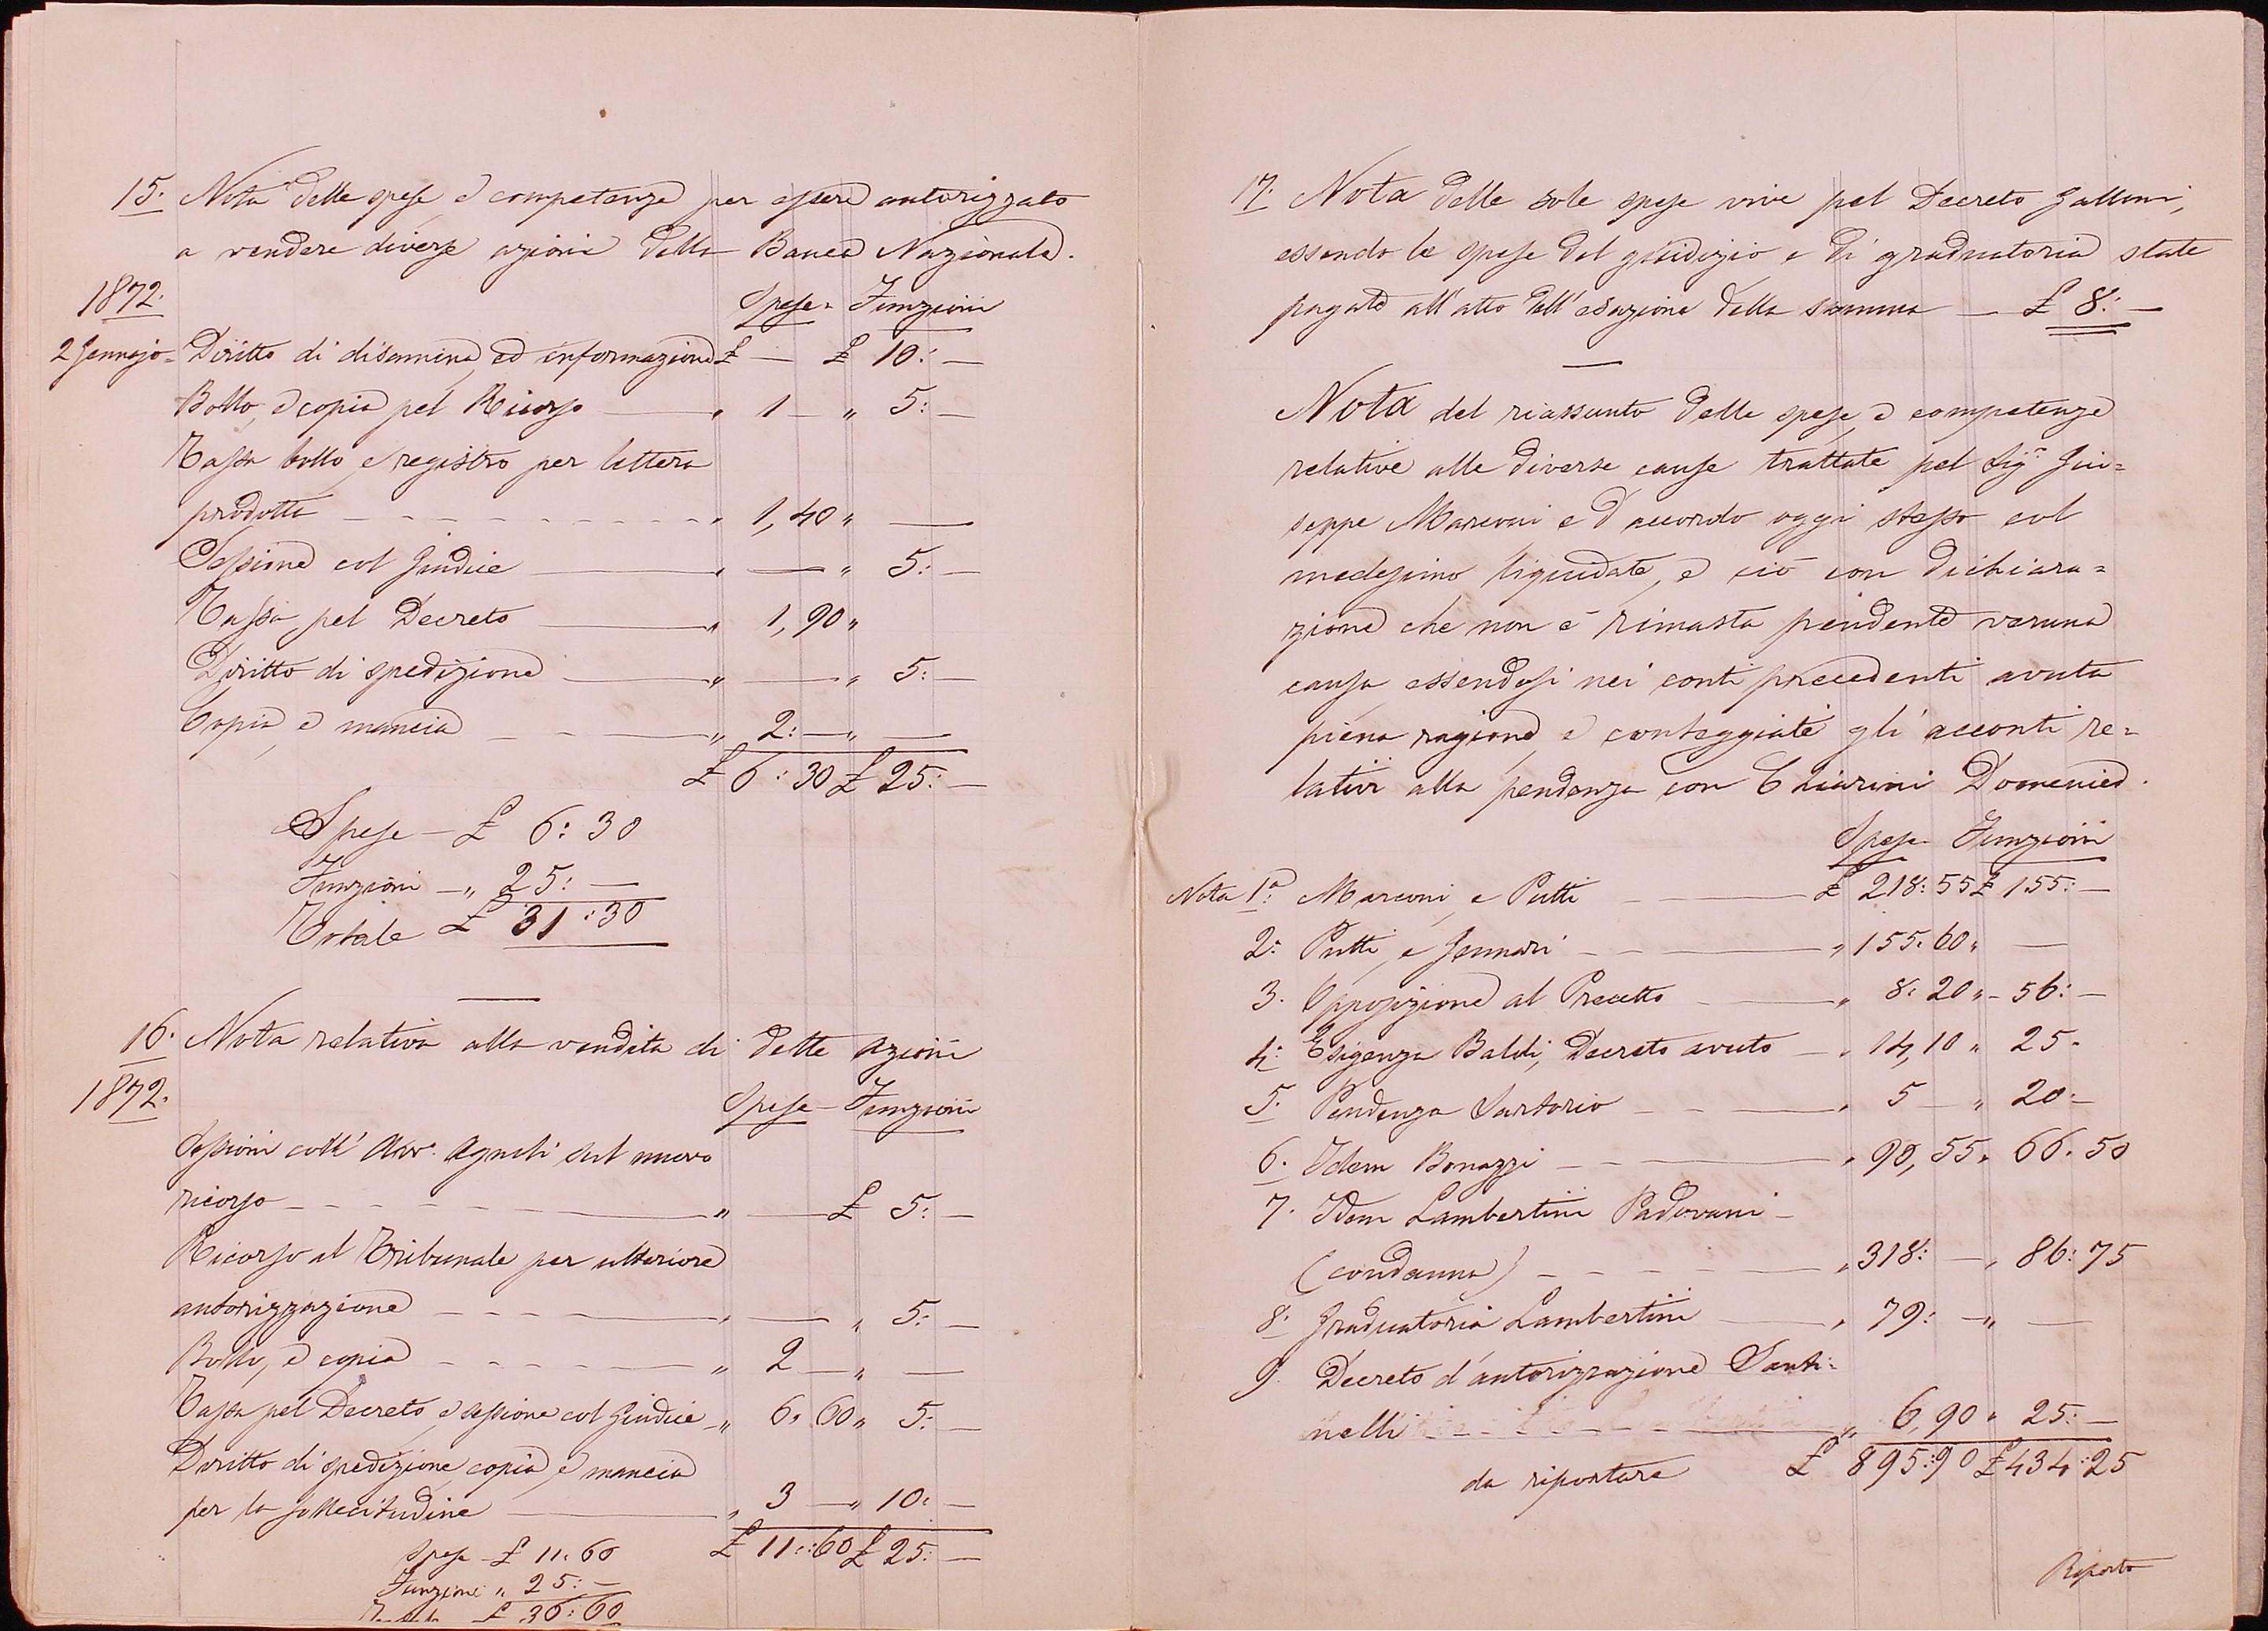 15. Nota delle spese e competenze per essere autorizzato
a vendere diverse azioni della Banca Nazionale.
1872.
Spese - Funzioni
2 Gennajo - Diritto di disamina, ed informazione £ — £ 10: —
Bollo, e copia pel Ricorso — " 1 — " 5: —
Tassa bollo, e registro per lettera
prodotta - - - " 1,40 " —
Sessione col Giudice — " — " 5: —
Tassa pel Decreto — " 1,90 "
Diritto di spedizione — " — " 5: —
Copia, e mancia - — " 2: — " —
£ 6: 30 £ 25: —
Spese — £ 6: 30
Funzioni — " 25: —
Totale £ 31: 30
16. Nota relativa alla vendita di dette azioni
1872.
Spese - Funzioni
Sessioni coll' Avv. Agnoli sul nuovo
ricorso - - - — " — £ 5: —
Ricorso al Tribunale per ulteriore
autorizzazione - - - " — " 5: —
Bollo, e copia - - - — " 2 — " —
Tassa pel Decreto, e sessione col Giudice — " 6. 60 " 5: —
Diritto di spedizione copia, e mancia
per la sollecitudine — " 3 — " 10: —
£ 11: 60 £ 25: —
Spese — £ 11: 60
Funzioni " 25: —
£ 36: 60
17. Nota delle sole spese vive pel Decreto Galloni,
essendo le spese del giudizio e di graduatoria state
pagate all'atto dell'esazione della somma — £ 8: —
Nota del riassunto delle spese, e competenze
relative alle diverse cause trattate pel Sigr. Giu=
seppe Marconi e d'accordo oggi stesso col
medesimo liquidate, e ciò con dichiara=
zione che non è rimasta pendente veruna
causa essendosi nei conti precedenti avuta
piena ragione, e conteggiati gli acconti re=
lativi alla pendenza con Chiarini Domenico.
Spese - Funzioni
Nota 1ª: Marconi, e Putti - — £ 218: 55 £ 155: —
2: Putti, e Gennari - — " 155. 60 " —
3. Opposizione al Precetto - — " 8: 20 " - 56: —
4: Esigenza Baldi, Decreto avuto — " 14,10 " 25 -
5. Pendenza Sartorio - — " 5 — " 20: —
6. Idem Bonazzi - — " 90,55 " 66. 50
7. Idem Lambertini Padovani —
(condanna) - - - " 318: — " 86: 75
8. Graduatoria Lambertini — " 79: — " —
9. Decreto d'autorizzazione Santi=
nelli - - - " 6,90 " 25: —
da riportare £ 895: 90 £ 434: 25
Riporto